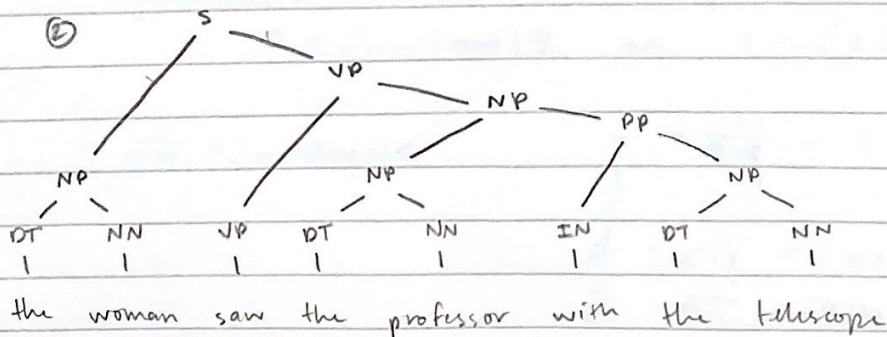 ② S
VP
NP
PP
NP NP NP
DT NN VP DT NN IN DT NN
the woman saw the professor with the telescope